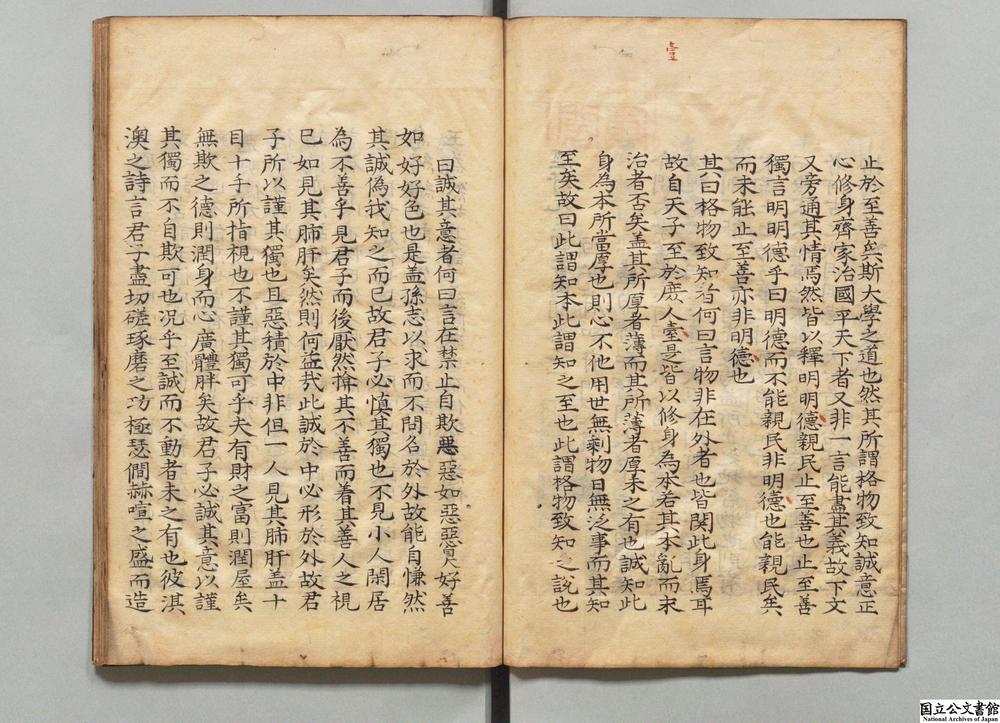 壹
止於至善矣斯大學之道也然其所謂格物致知誠意正
心修身齊家治國平天下者又非一言能盡其義故下文
又旁通其情焉然皆以釋明明德親民止至善也止至善
獨言明明德乎曰明德而不能親民非明德也能親民矣
而未能止至善亦非明德也
其曰格物致知者何曰言物非在外者也皆関此身焉耳
故自天子至於庶人壹是皆以修身為本若其本亂而末
治者否矣盖其所厚者薄而其所薄者厚未之有也誠知此
身為本所當厚也則心不他用世無剩物日無泛事而其知
至矣故曰此謂知本此謂知之至也此謂格物致知之說也
曰誠其意者何曰言在禁止自欺惡惡如惡惡臭好善
如好好色也是盖孫志以求而不問名於外故能自慊然
其誠偽我知之而已故君子必慎其獨也不見小人閑居
為不善乎見君子而後厭然揜其不善而着其善人之視
已如見其肺肝矣然則何益哉此誠於中必形於外故君
子所以謹其獨也且惡積於中非但一人見其肺肝盖十
目十手所指視也不謹其獨可乎夫有財之富則潤屋矣
無欺之德則潤身而心廣體胖矣故君子必誠其意以謹
其獨而不自欺可也况乎至誠而不動者未之有也彼淇
澳之詩言君子盡切磋琢磨之功極瑟僩赫喧之盛而造
国立公文書館
National Archives of Japan